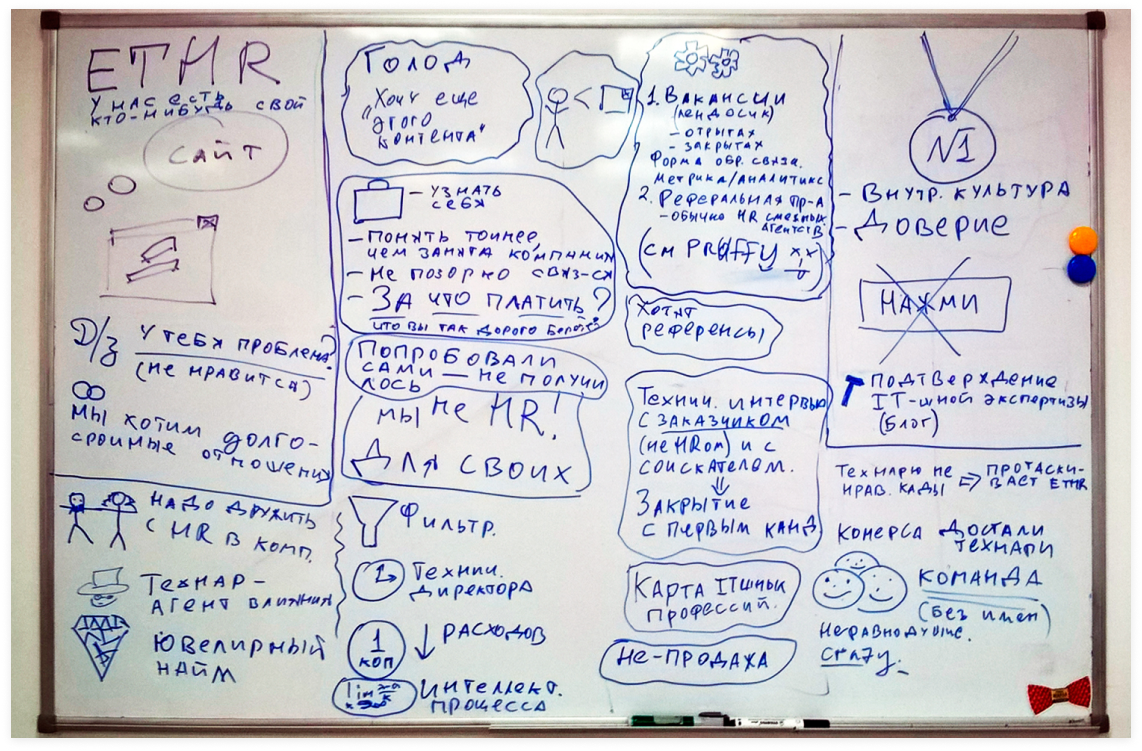 ETHR
У НАС ЕСТЬ СВОЙ
КТО-НИБУДЬ
САЙТ
Д/З У ТЕБЯ ПРОБЛЕМА?
(НЕ НРАВИТСЯ)
МЫ ХОТИМ ДОЛГО-
СРОЧНЫЕ ОТНОШЕНИЯ
НАДО ДРУЖИТЬ
С HR В КОМП.
ТЕХНАР -
АГЕНТ ВЛИЯНИЯ
ЮВЕЛИРНЫЙ
НАЙМ
ГОЛОД
ХОЧУ ЕЩЕ
"ЭТОГО
КОНТЕНТА"
- УЗНАТЬ
СЕБЯ
- ПОНЯТЬ ТОЧНЕЕ,
ЧЕМ ЗАНЯТА КОМПАНИЯ
- НЕ ПОЗОРНО СВЯЗ-СЯ
- ЗА ЧТО ПЛАТИТЬ?
ЧТО ВЫ ТАК ДОРОГО БЕРЕТЕ?
ПОПРОБОВАЛИ
САМИ — НЕ ПОЛУЧИ
ЛОСЬ
МЫ НЕ HR!
ДЛЯ СВОИХ
ФИЛЬТР.
ТЕХНИЧ.
ДИРЕКТОРА
1
КОП
↓ РАСХОДОВ
lim
ИНТЕЛЛЕКТ.
ПРОЦЕССА
1. ВАКАНСИИ
(ЛЕНДОСИК)
- ОТРЫТАХ
- ЗАКРЫТАХ
ФОРМА ОБР. СВЯЗИ.
МЕТРИКА/АНАЛИТИКС
2. РЕФЕРАЛЬНАЯ ПР-А
- ОБЫЧНО HR СМЕЖНЫХ
АГЕНТСТВ
(СМ PROFFY)
ХОТЯТ
РЕФЕРЕНСЫ
ТЕХНИЧ. ИНТЕРВЬЮ
С ЗАКАЗЧИКОМ
(НЕ HRОМ) И С
СОИСКАТЕЛЕМ.
⇓
ЗАКРЫТИЕ
С ПЕРВЫМ КАНД.
КАРТА ITШНЫХ
ПРОФЕССИЙ.
НЕ-ПРОДАЖА
N1
- ВНУТР. КУЛЬТУРА
- ДОВЕРИЕ
НАЖМИ
ПОДТВЕРЖДЕНИЕ
IT-ШНОЙ ЭКСПЕРТИЗЫ
(БЛОГ)
ТЕХНАРЮ НЕ ⇒ ПРОТАСКИ-
НРАВ. КАДЫ ВАЕТ ETHR
КОНЕРСА ДОСТАЛИ
ТЕХНАРИ
КОМАНДА
(БЕЗ ИМЕН)
НЕРАВНОДУШНЕ.
CRAZY.